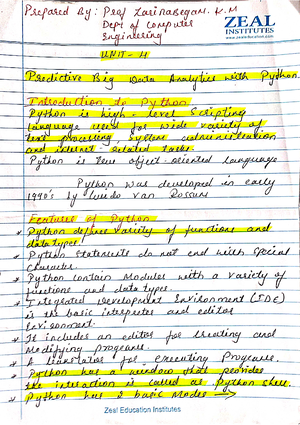 Prepared By: Prof Zarinabegam. K. M
Dept of Computer
Engineering
ZEAL
INSTITUTES
www.zealeducation.com
UNIT - 4
Predictive Big Data Analytics with Python
Introduction to Python
Python is high-level Scripting
Language used for wide variety of
text processing system administration
and internet-related tasks.
Python is true object-oriented language
Python was developed in early
1990's by Guido Van Rossum
Features of Python
* Python define variety of functions and
datatypes.
* Python Statements do not end with special
character.
* Python Contain Modules with a variety of
functions and data types.
* Integrated Development Environment (IDE)
is the basic interpreter and editor
environment.
* It includes an editor for creating and
Modifying programs.
* A translator for executing programs.
* Python has a window that provides
the interaction is called as Python shell.
* Python has 2 basic Modes →
Zeal Education Institutes